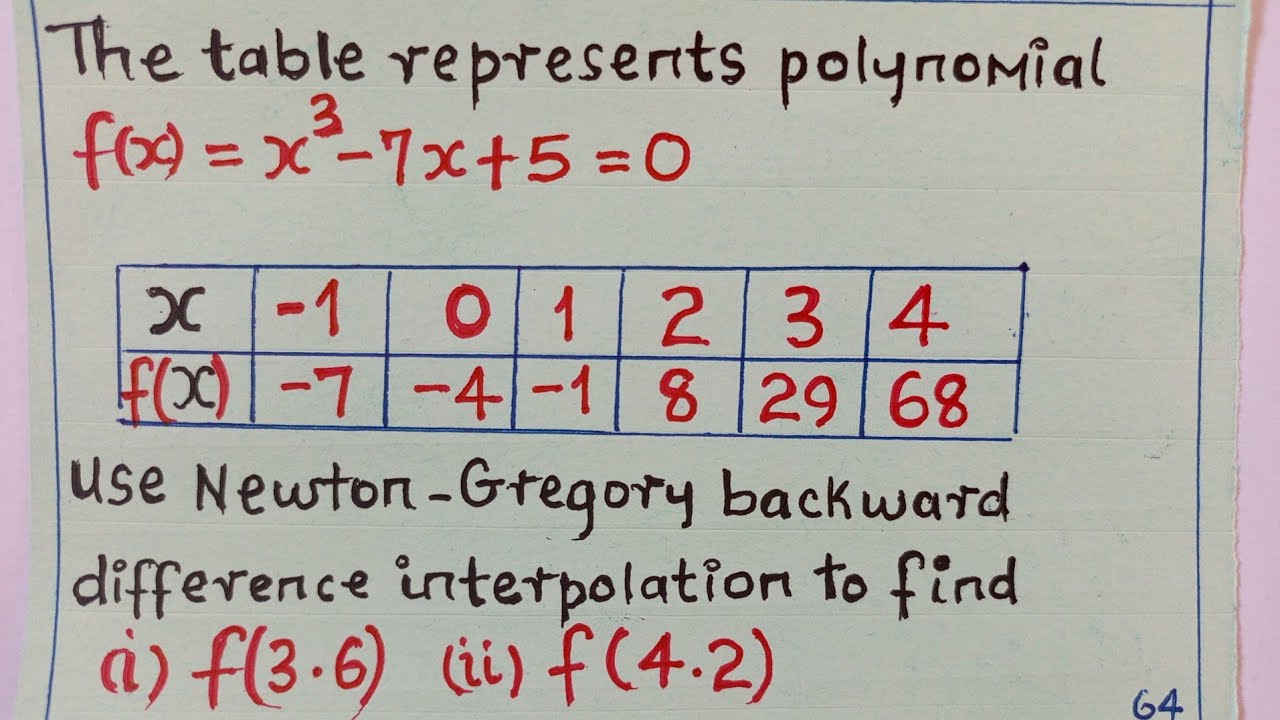 The table represents polynomial
f(x) = x³ - 7x + 5 = 0
x -1 0 1 2 3 4
f(x) -7 -4 -1 8 29 68
use Newton-Gregory backward
difference interpolation to find
(i) f(3.6) (ii) f(4.2)
64